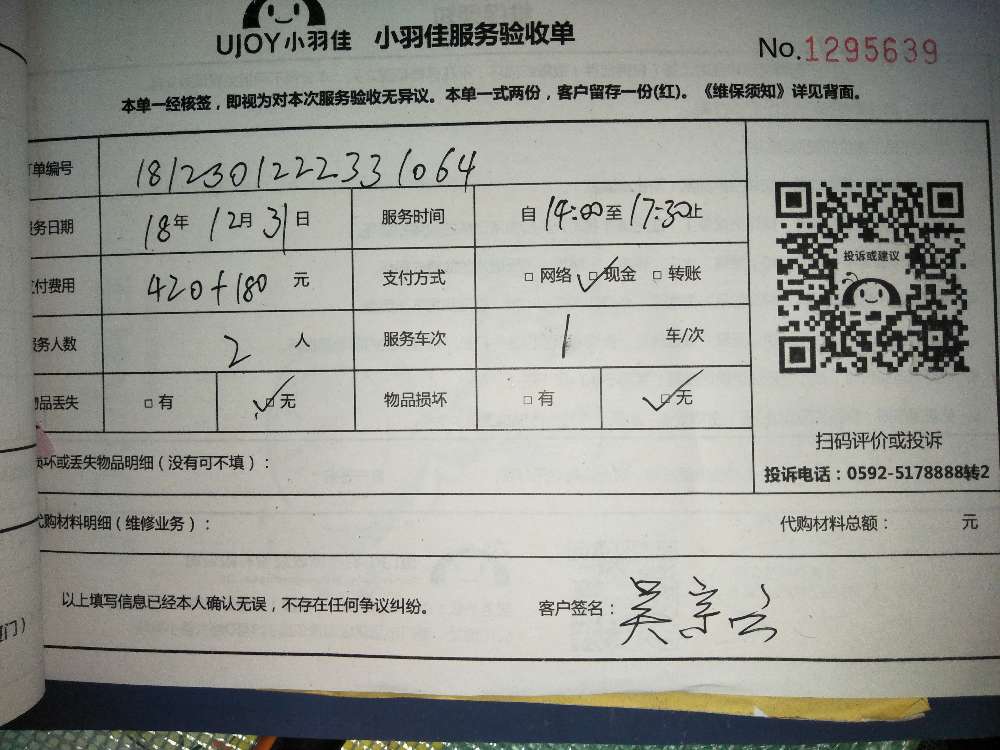 UJOY小羽佳 小羽佳服务验收单
No.1295639
本单一经核签，即视为对本次服务验收无异议。本单一式两份，客户留存一份(红)。《维保须知》详见背面。
单编号 1812301222331064
务日期 18年 12月 31日 服务时间 自14:00至17:30止
付费用 420+180 元 支付方式 □网络 ☑现金 □转账
务人数 2 人 服务车次 1 车/次
品丢失 □有 ☑无 物品损坏 □有 ☑无
投诉或建议
扫码评价或投诉
投诉电话：0592-5178888转2
坏或丢失物品明细（没有可不填）：
代购材料明细（维修业务）： 代购材料总额： 元
以上填写信息已经本人确认无误，不存在任何争议纠纷。 客户签名：吴宗云
门）